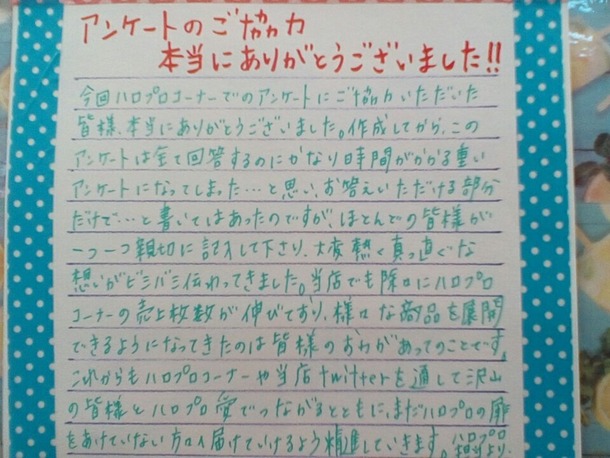 アンケートのご協力
本当にありがとうございました!!
今回ハロプロコーナーでのアンケートにご協力いただいた
皆様、本当にありがとうございました。作成してから、この
アンケートは全て回答するのにかなり時間がかかる重い
アンケートになってしまった…と思い、お答えいただける部分
だけで…と書いてはあったのですが、ほとんどの皆様が
一つ一つ親切に記入して下さり、大変熱く真っ直ぐな
想いがビシバシ伝わってきました。当店でも除々にハロプロ
コーナーの売上枚数が伸びており、様々な商品を展開
できるようになってきたのは皆様のおかがあってのことです。
これからもハロプロコーナーや当店twitterを通して沢山
の皆様とハロプロ愛でつながるとともに、まだハロプロの扉
をあけていない方々へ届けていけるよう精進していきます。ハロプロ
担当より